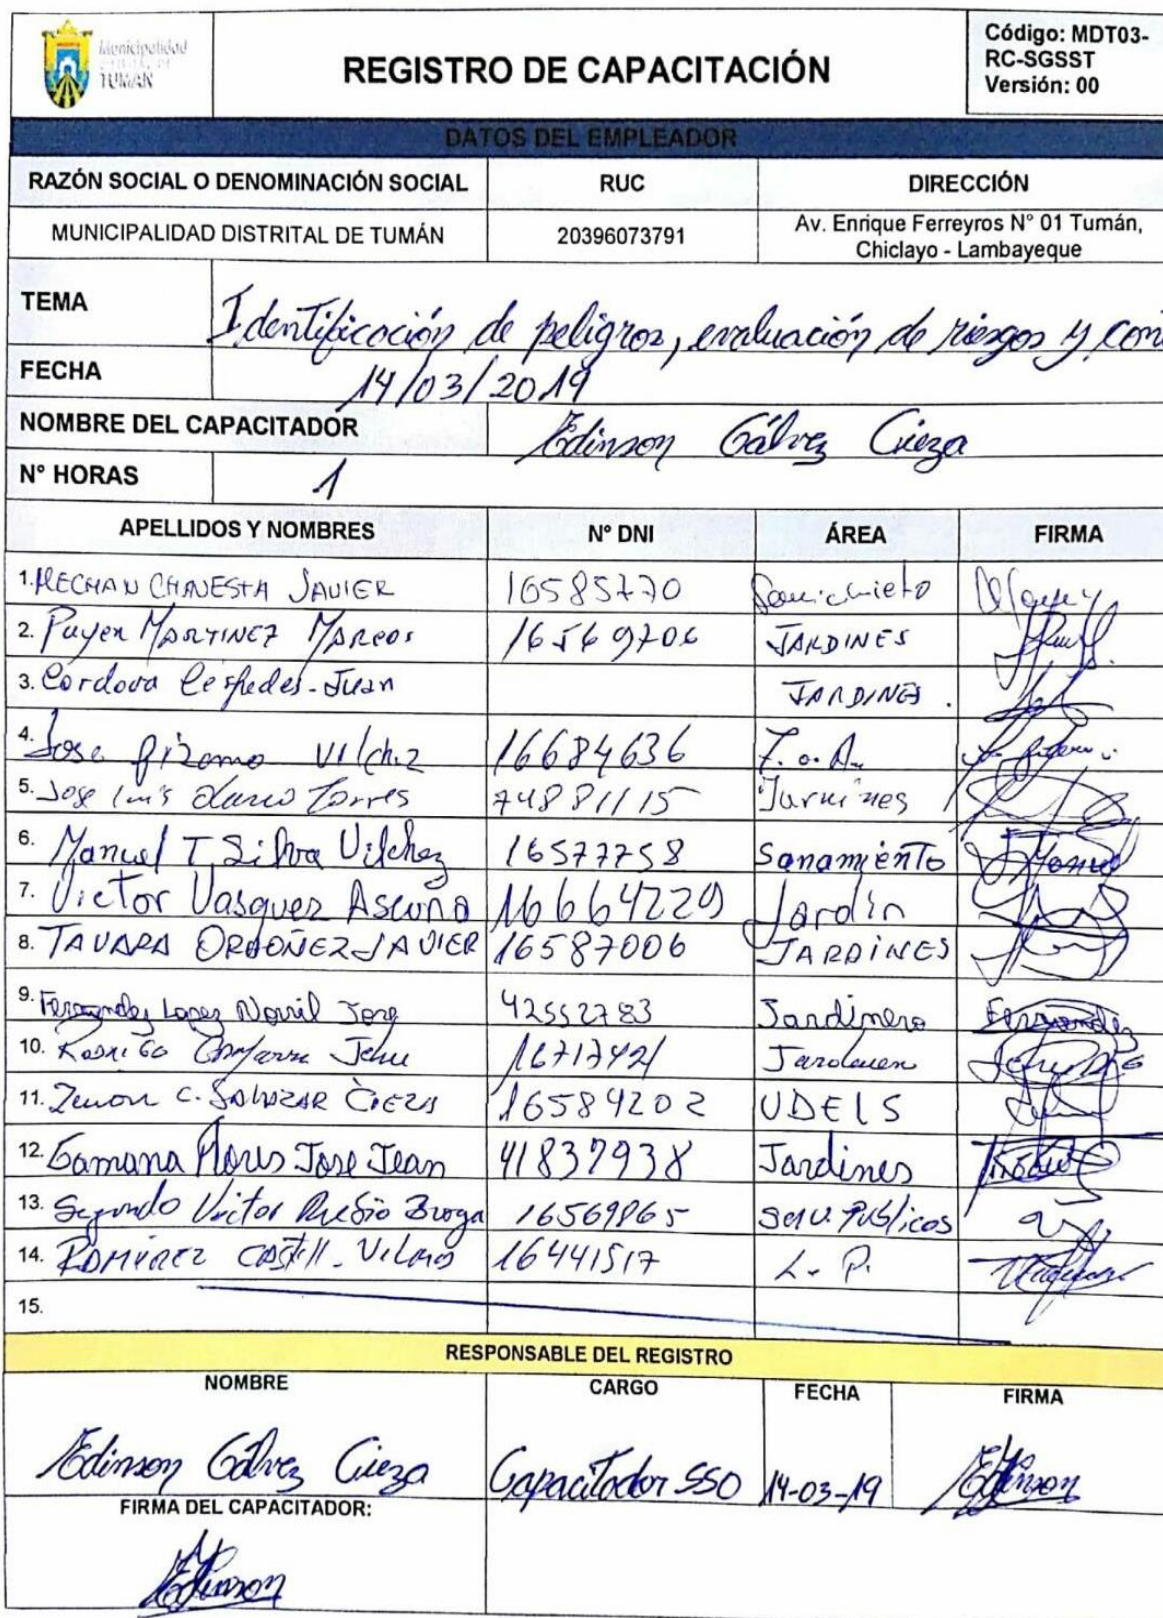 Municipalidad
DISTRITAL DE
TUMÁN
REGISTRO DE CAPACITACIÓN
Código: MDT03-
RC-SGSST
Versión: 00
DATOS DEL EMPLEADOR
RAZÓN SOCIAL O DENOMINACIÓN SOCIAL RUC DIRECCIÓN
MUNICIPALIDAD DISTRITAL DE TUMÁN 20396073791 Av. Enrique Ferreyros N° 01 Tumán,
Chiclayo - Lambayeque
TEMA Identificación de peligros, evaluación de riesgos y con
FECHA 14/03/2019
NOMBRE DEL CAPACITADOR Edinson Gálvez Cieza
N° HORAS 1
APELLIDOS Y NOMBRES N° DNI ÁREA FIRMA
1. CHAVESTA JAVIER 16585770
2. Puyen MARTINEZ MARCOS 16569706 JARDINES
3. Cordova Cespedes-Juan JARDINES.
4. Jose Pizarro Vilchez 16684636
5. Jose Luis Torres 74881115
6. Manuel T. Silva Vilchez 16577758 Sanamiento
7. Victor Vasquez Ascuña 16664229 Jardin
8. TAVARA ORDOÑEZ JAVIER 16587006 JARDINES
9. Fernandez Lopez Jorg 42552783 Jardinero Fernandez
10. Rodrigo Jehu 16717421
11. Zenon C. SALAZAR CIEZA 16584202 UDELS
12. Gamana Flores Jose Jean 41837938 Jardines
13. Segundo Victor Broga 16569865 Serv. Publicos
14. RAMIREZ CASTILL. 16441517 L. P.
15.
RESPONSABLE DEL REGISTRO
NOMBRE CARGO FECHA FIRMA
Edinson Gálvez Cieza Capacitador SSO 14-03-19 Edinson
FIRMA DEL CAPACITADOR:
Edinson